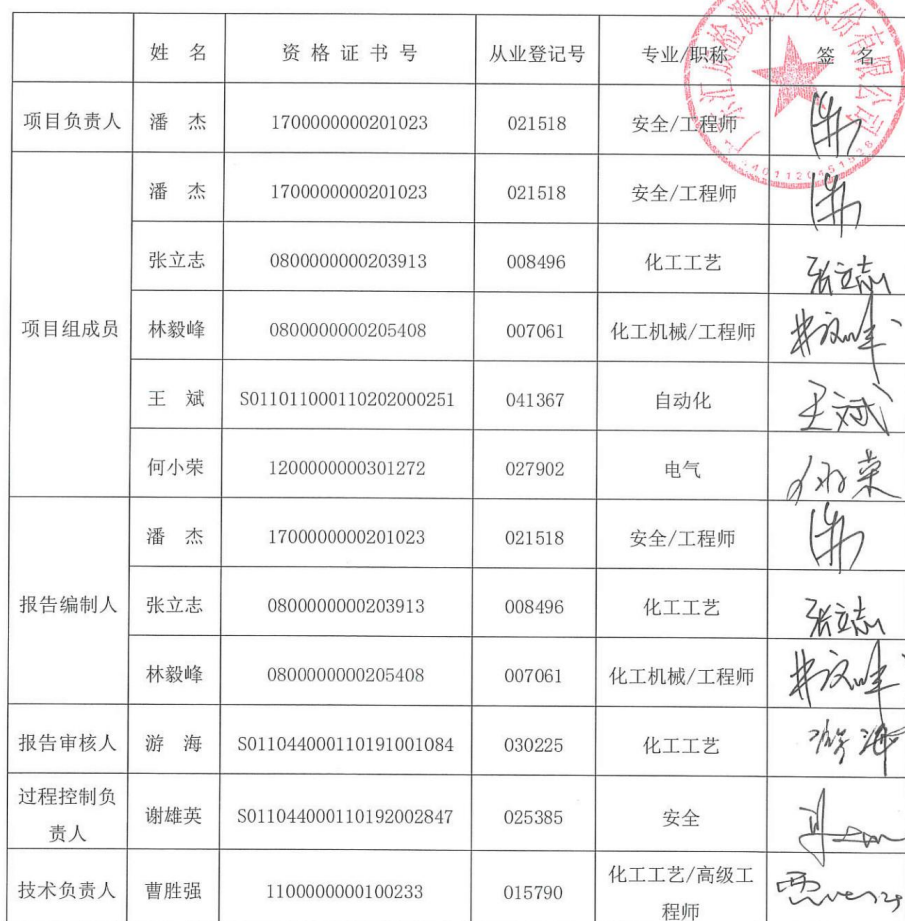 姓 名 资格证书号 从业登记号 专业/职称 签 名
项目负责人 潘 杰 1700000000201023 021518 安全/工程师
项目组成员 潘 杰 1700000000201023 021518 安全/工程师
张立志 0800000000203913 008496 化工工艺 张立志
林毅峰 0800000000205408 007061 化工机械/工程师
王 斌 S011011000110202000251 041367 自动化 王斌
何小荣 1200000000301272 027902 电气 何小荣
报告编制人 潘 杰 1700000000201023 021518 安全/工程师
张立志 0800000000203913 008496 化工工艺 张立志
林毅峰 0800000000205408 007061 化工机械/工程师
报告审核人 游 海 S011044000110191001084 030225 化工工艺 游海
过程控制负
责人 谢雄英 S011044000110192002847 025385 安全
技术负责人 曹胜强 1100000000100233 015790 化工工艺/高级工
程师